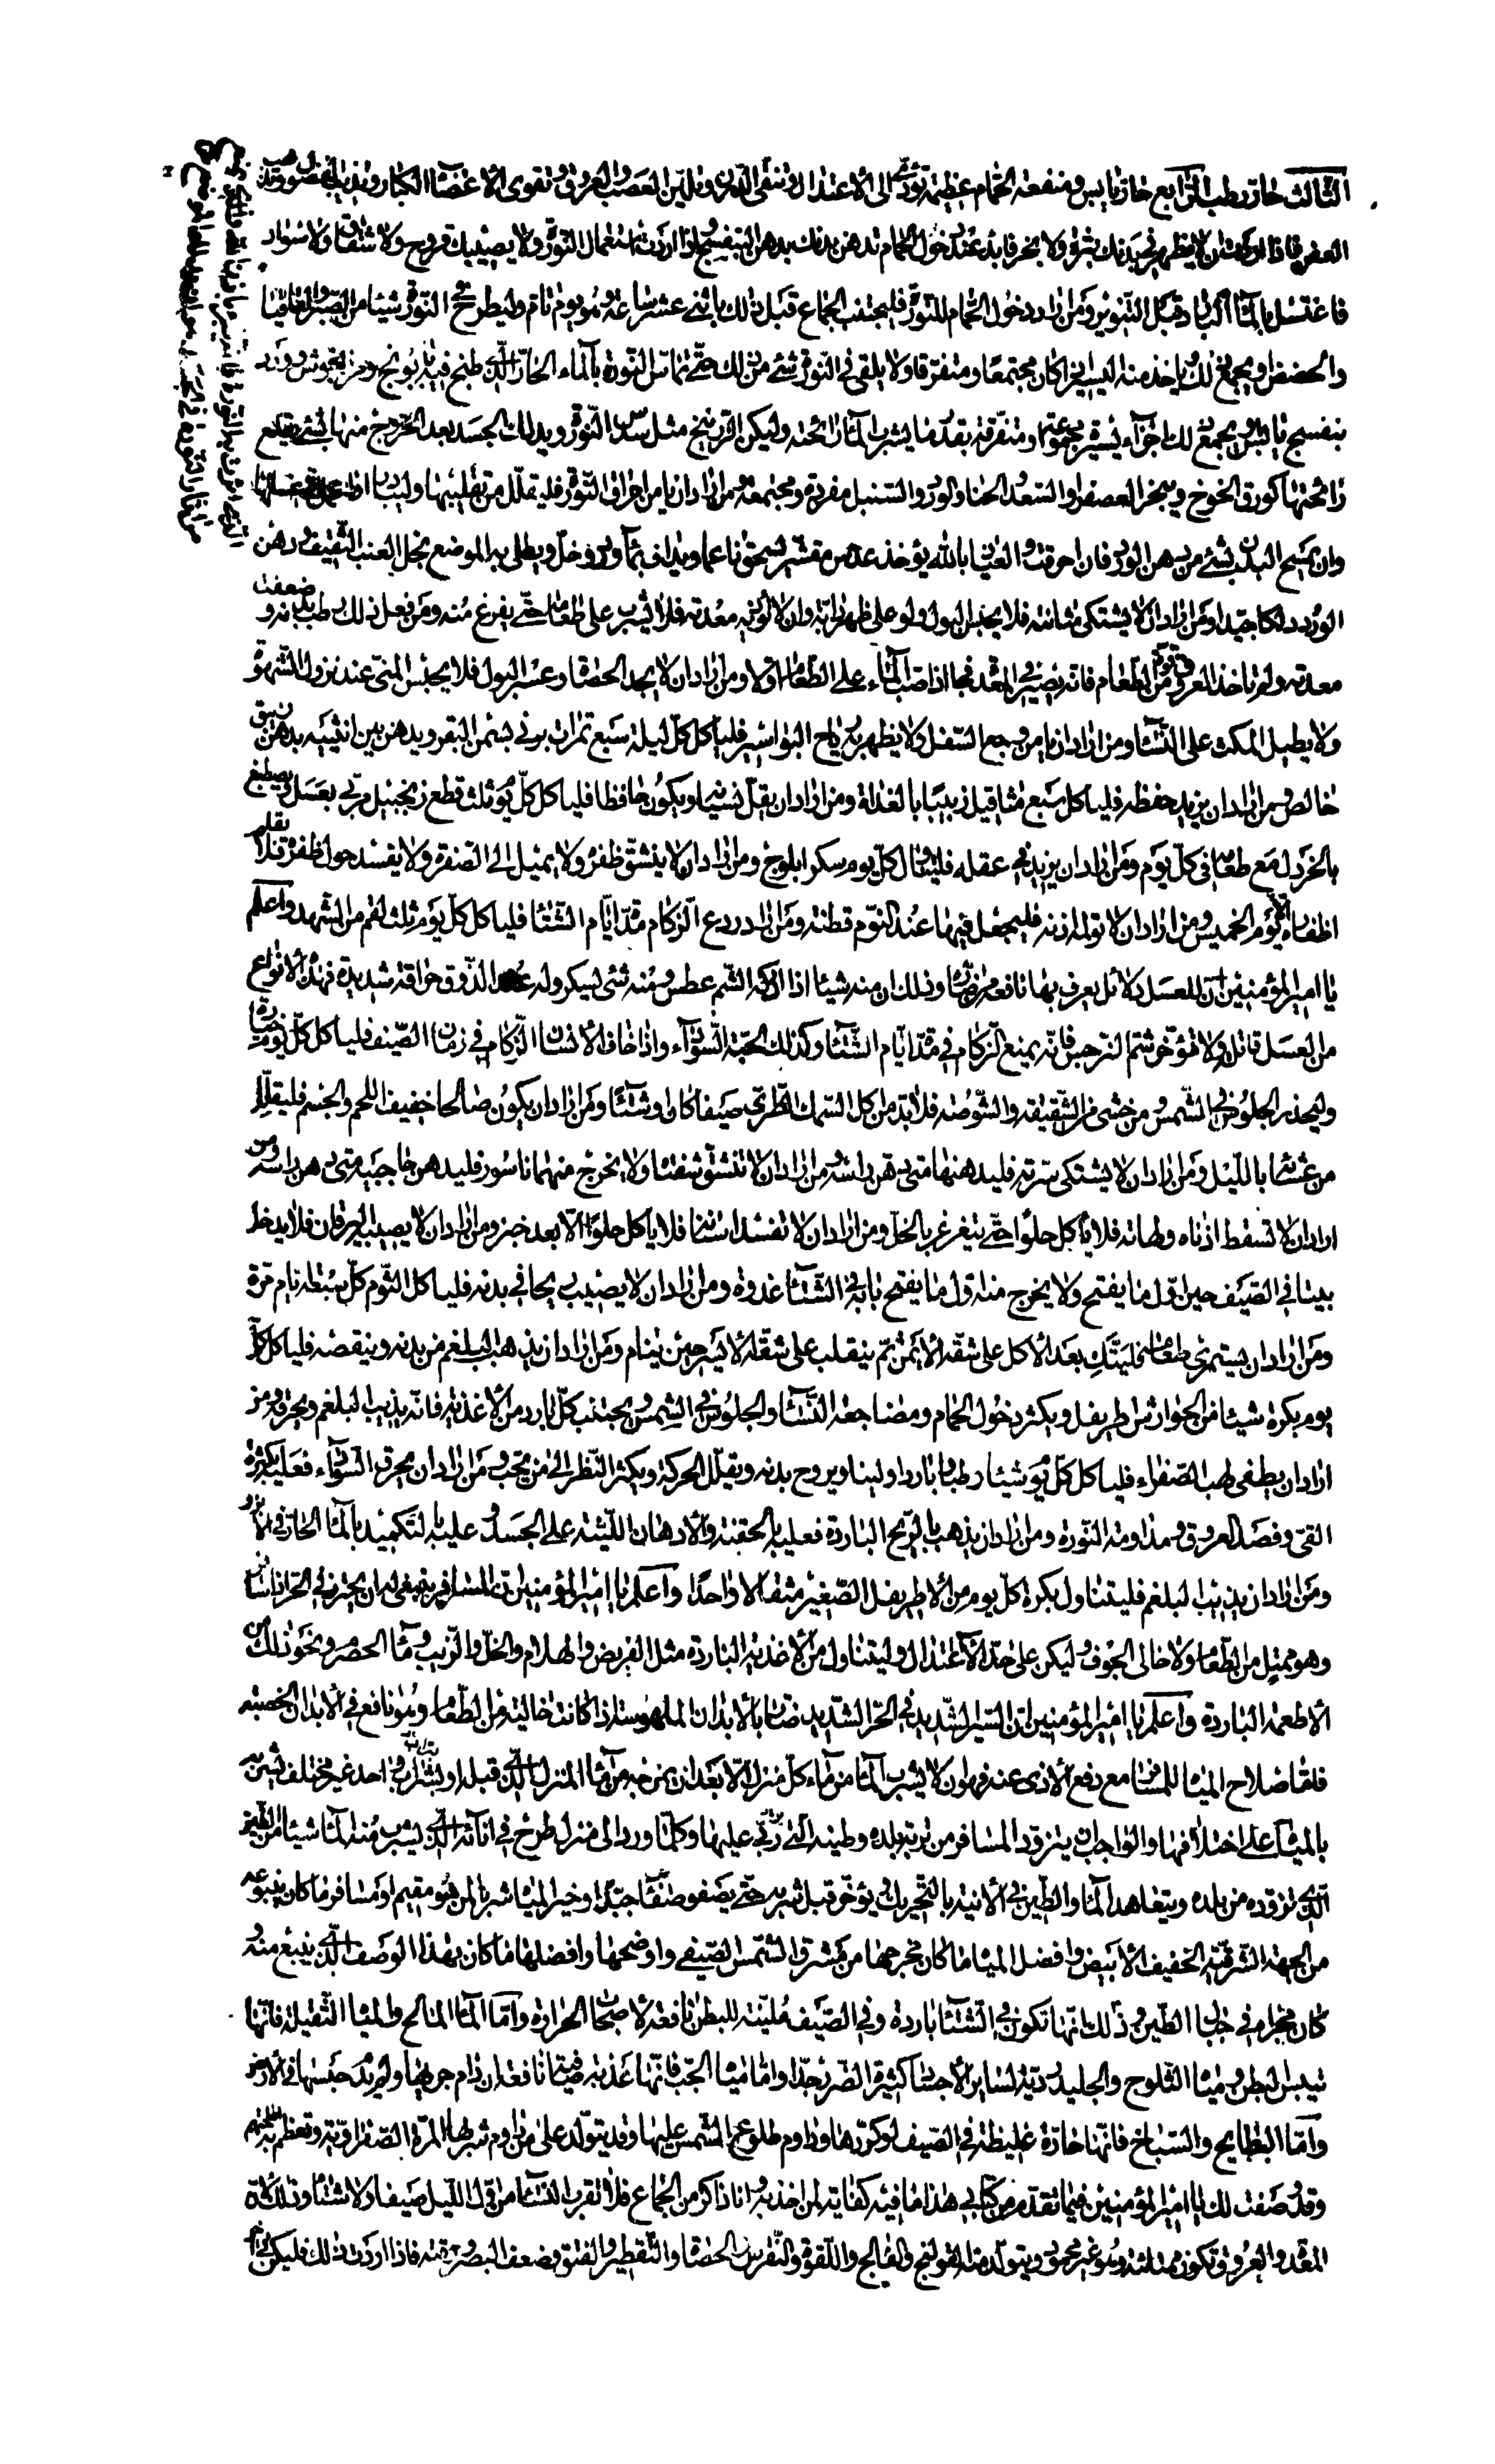 الثالث حار رطب الرابع حار يابس ومنفعة الحمام عظيمة تؤدى الى الاعتدال وتنقى الدرن وتلين العصب والعروق وتقوى الاعضاء الكبار وتذيب الفضول وتذهب
العفن فاذا اردت ان لا يظهر فى بدنك بثرة ولا غيرها فابدء عند دخول الحمام تدهن بدنك بدهن البنفسج واذا اردت استعمال النورة ولا يصيبك قروح ولا شقاق ولا سواد
فاغتسل بالماء البارد قبل التنوير ومن اراد دخول الحمام للنورة فليجتنب الجماع قبل ذلك باثنى عشر ساعة وهو يوم تام وليطرح فى النورة شيئا من الصبر والقاقيا
والحضض ويجمع ذلك وياخذ منه اليسير اذا كان مجتمعا او متفرقا ولا يلقى فى النورة شئ من ذلك حتى تماس النورة بالماء الحار الذى طبخ فيه بابونج ومرزنجوش وورد
بنفسج يابس يجمع ذلك اجزاء يسيرة مجموعة او متفرقة بقدر ما يشرب الماء رائحته وليكن الزرنيخ مثل سدس النورة ويدلك الجسد بعد الخروج منها بشئ يقلع
رائحتها كورق الخوخ وثجير العصفر والسعد والحنا والورد والسنبل مفردة ومجتمعة ومن اراد ان يامن احراق النورة فليقلل من تقليبها وليبادر اذا عملت فى غسلها
وان يمسح البدن بشئ من دهن الورد فان احرقت والعياذ بالله يؤخذ عدس مقشر يسحق ناعما ويداف بماء ورد وخل ويطلى به الموضع بخل العنب الثقيف ودهن
الورد دلكا جيدا ومن اراد ان لا يشتكى مثانته فلا يحبس البول ولو على ظهر دابته وان لا تؤذيه معدته فلا يشرب على طعامه حتى يفرغ منه ومن فعل ذلك رطب بدنه و ضعفت
معدته ولم تاخذ العروق قوة من الطعام فانه يصير فى المعدة فجا اذا صب الماء على الطعام اولا ومن اراد ان لا يجد الحصاة وعسر البول فلا يحبس المنى عند نزول الشهوة
ولا يطيل المكث على النساء ومن اراد ان يامن وجع السفل ولا يظهر به رياح البواسير فلياكل كل ليلة سبع تمرات برنى بسمن البقر ويدهن بين انثييه بدهن زنبق
خالص ومن اراد ان يزيد حفظه فلياكل سبع مثاقيل زبيبا بالغداة ومن اراد ان يقل نسيانه ويكون حافظا فلياكل كل يوم ثلث قطع زنجبيل مربى بعسل ويصطبغ
بالخردل مع طعامه فى كل يوم ومن اراد ان يزيد فى عقله فليتناول كل يوم سكر ابلوج ومن اراد ان لا ينشق ظفره ولا يميل الى الصفرة ولا يفسد حول ظفره فلا يقلم
اظفاره الا يوم الخميس ومن اراد ان لا تؤلمه اذنه فليجعل فيها عند النوم قطنة ومن اراد ردع الزكام مدة ايام الشتاء فلياكل كل يوم ثلث لقم من الشهد واعلم
يا امير المؤمنين ان للعسل دلائل يعرف بها نافعه من ضاره وذلك ان منه شيئا اذا ادركه الشم عطس ومنه شئ يسكر وله عند الذوق حراقة شديدة فهذه الانواع
من العسل قاتلة ولا تؤخر شم النرجس فانه يمنع الزكام فى مدة ايام الشتاء وكذلك الحبة السوداء واذا خاف الانسان الزكام فى زمان الصيف فلياكل كل يوم خيارة
وليحذر الجلوس فى الشمس ومن خشى من الشقيقة والشوصة فلا بد من اكل السمك الطرى صيفا كان او شتاء ومن اراد ان يكون صالحا خفيف اللحم والجسم فليقلل
من عشائه بالليل ومن اراد ان لا يشتكى سرته فليدهنها متى دهن راسه ومن اراد ان لا تنشق شفتاه ولا يخرج منهما ناسور فليدهن حاجبيه متى دهن راسه ومن
اراد ان لا تسقط اذناه ولهاته فلا ياكل حلوا حتى يتغرغر بالخل ومن اراد ان لا تفسد اسنانه فلا ياكل حلوا الا بعد خبز ومن اراد ان لا يصيبه اليرقان فلا يدخل
بيتا فى الصيف حين اول ما يفتح ولا يخرج منه اول ما يفتح بابه فى الشتاء غدوة ومن اراد ان لا يصيبه ريحا فى بدنه فلياكل الثوم كل سبعة ايام مرة
ومن اراد ان يستمرئ طعامه فليتك بعد الاكل على شقه الايمن ثم ينقلب على شقه الايسر حين ينام ومن اراد ان يذهب البلغم من بدنه وينقصه فلياكل كل
يوم بكرة شيئا من الجوارش اطريفل ويكثر دخول الحمام ومضاجعة النساء والجلوس فى الشمس ويجتنب كل بارد من الاغذية فانه يذيب البلغم ويحرقه ومن
اراد ان يطفى لهب الصفراء فلياكل كل يوم شيئا رطبا باردا ولينا ويروح بدنه ويقلل الحركة ويكثر النظر الى من يحب ومن اراد ان يحرق السوداء فعليه بكثرة
القئ وفصد العروق ومداومة النورة ومن اراد ان يذهب بالريح الباردة فعليه بالحقنة والادهان اللينة على الجسد وعليه بالتكميد بالماء الحار فى الابزن
ومن اراد ان يذيب البلغم فليتناول بكرة كل يوم من الاطريفل الصغير مثقالا واحدا واعلم يا امير المؤمنين ان المسافر ينبغى له ان يحترز فى الحر اذا سافر
وهو ممتل من الطعام ولا خالى الجوف وليكن على حد الاعتدال وليتناول من الاغذية الباردة مثل القريض والهلام والخل والزيت وماء الحصرم ونحو ذلك من
الاطعمة الباردة واعلم يا امير المؤمنين ان السير الشديد فى الحر الشديد ضار بالابدان الملهوسة اذا كانت خالية من الطعام وهو نافع فى الابدان الخصبة
فاما صلاح المياه للمسافر مع دفع الاذى عنه فهو ان لا يشرب الماء من ماء كل منزل الا بعد ان يمزجه من ماء المنزل الذى قبله او بشراب واحد غير مختلف يشوبه
بالمياه على اختلافها والواجب ان يتزود المسافر من تربة بلده وطينه التى ربى عليها وكلما ورد الى منزل طرح فى انائه الذى يشرب منه الماء شيئا من الطين
الذى تزوده من بلده ويتعاهد الماء والطين فى الانية بالتحريك ويؤخر قبل شربه حتى يصفو صفاء جيدا وخير المياه شربا لمن هو مقيم او مسافر ما كان ينبوعه
من الجهة الشرقية الخفيف الابيض وافضل المياه ما كان مخرجها من مشرق الشمس الصيفى واوضحها وافضلها ما كان بهذا الوصف الذى ينبع منه و
كان مجراه فى جبال الطين وذلك انها تكون فى الشتاء باردة وفى الصيف ملينة للبطن نافعة لاصحاب الحرارة واما الماء المالح والمياه الثقيلة فانها
تيبس البطن ومياه الثلوج والجليد ردية لساير الاجساد كثيرة الضرر جدا واما مياه الجب فانها عذبة صافية نافعة ان دام جريها ولم يدم حبسها فى الارض
واما البطايح والسباخ فانها حارة غليظة فى الصيف لركودها ودوام طلوع الشمس عليها وقد يتولد على من داوم شربها المرة الصفراوية وتعظم به اطحلتهم
وقد وصفت لك يا امير المؤمنين فيما تقدم من كتابى هذا ما فيه كفاية لمن اخذ به وانا ذاكر من الجماع فلا تقرب النساء من اول الليل صيفا ولا شتاء وذلك لان
المعدة والعروق تكون ممتلئة وهو غير محمود ويتولد منه القولنج والفالج واللقوة والنقرس والحصاة والتقطير والفتق وضعف البصر ورقته فاذا اردت ذلك فليكن فى اخر